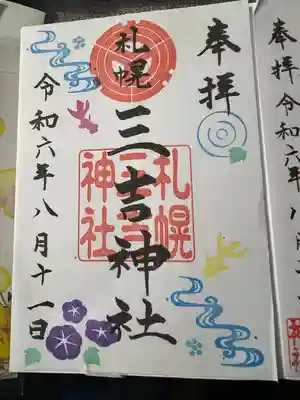 奉拝
札幌
三吉神社
札幌
三吉
神社
令和六年八月十一日
奉拝
令和六年八月十